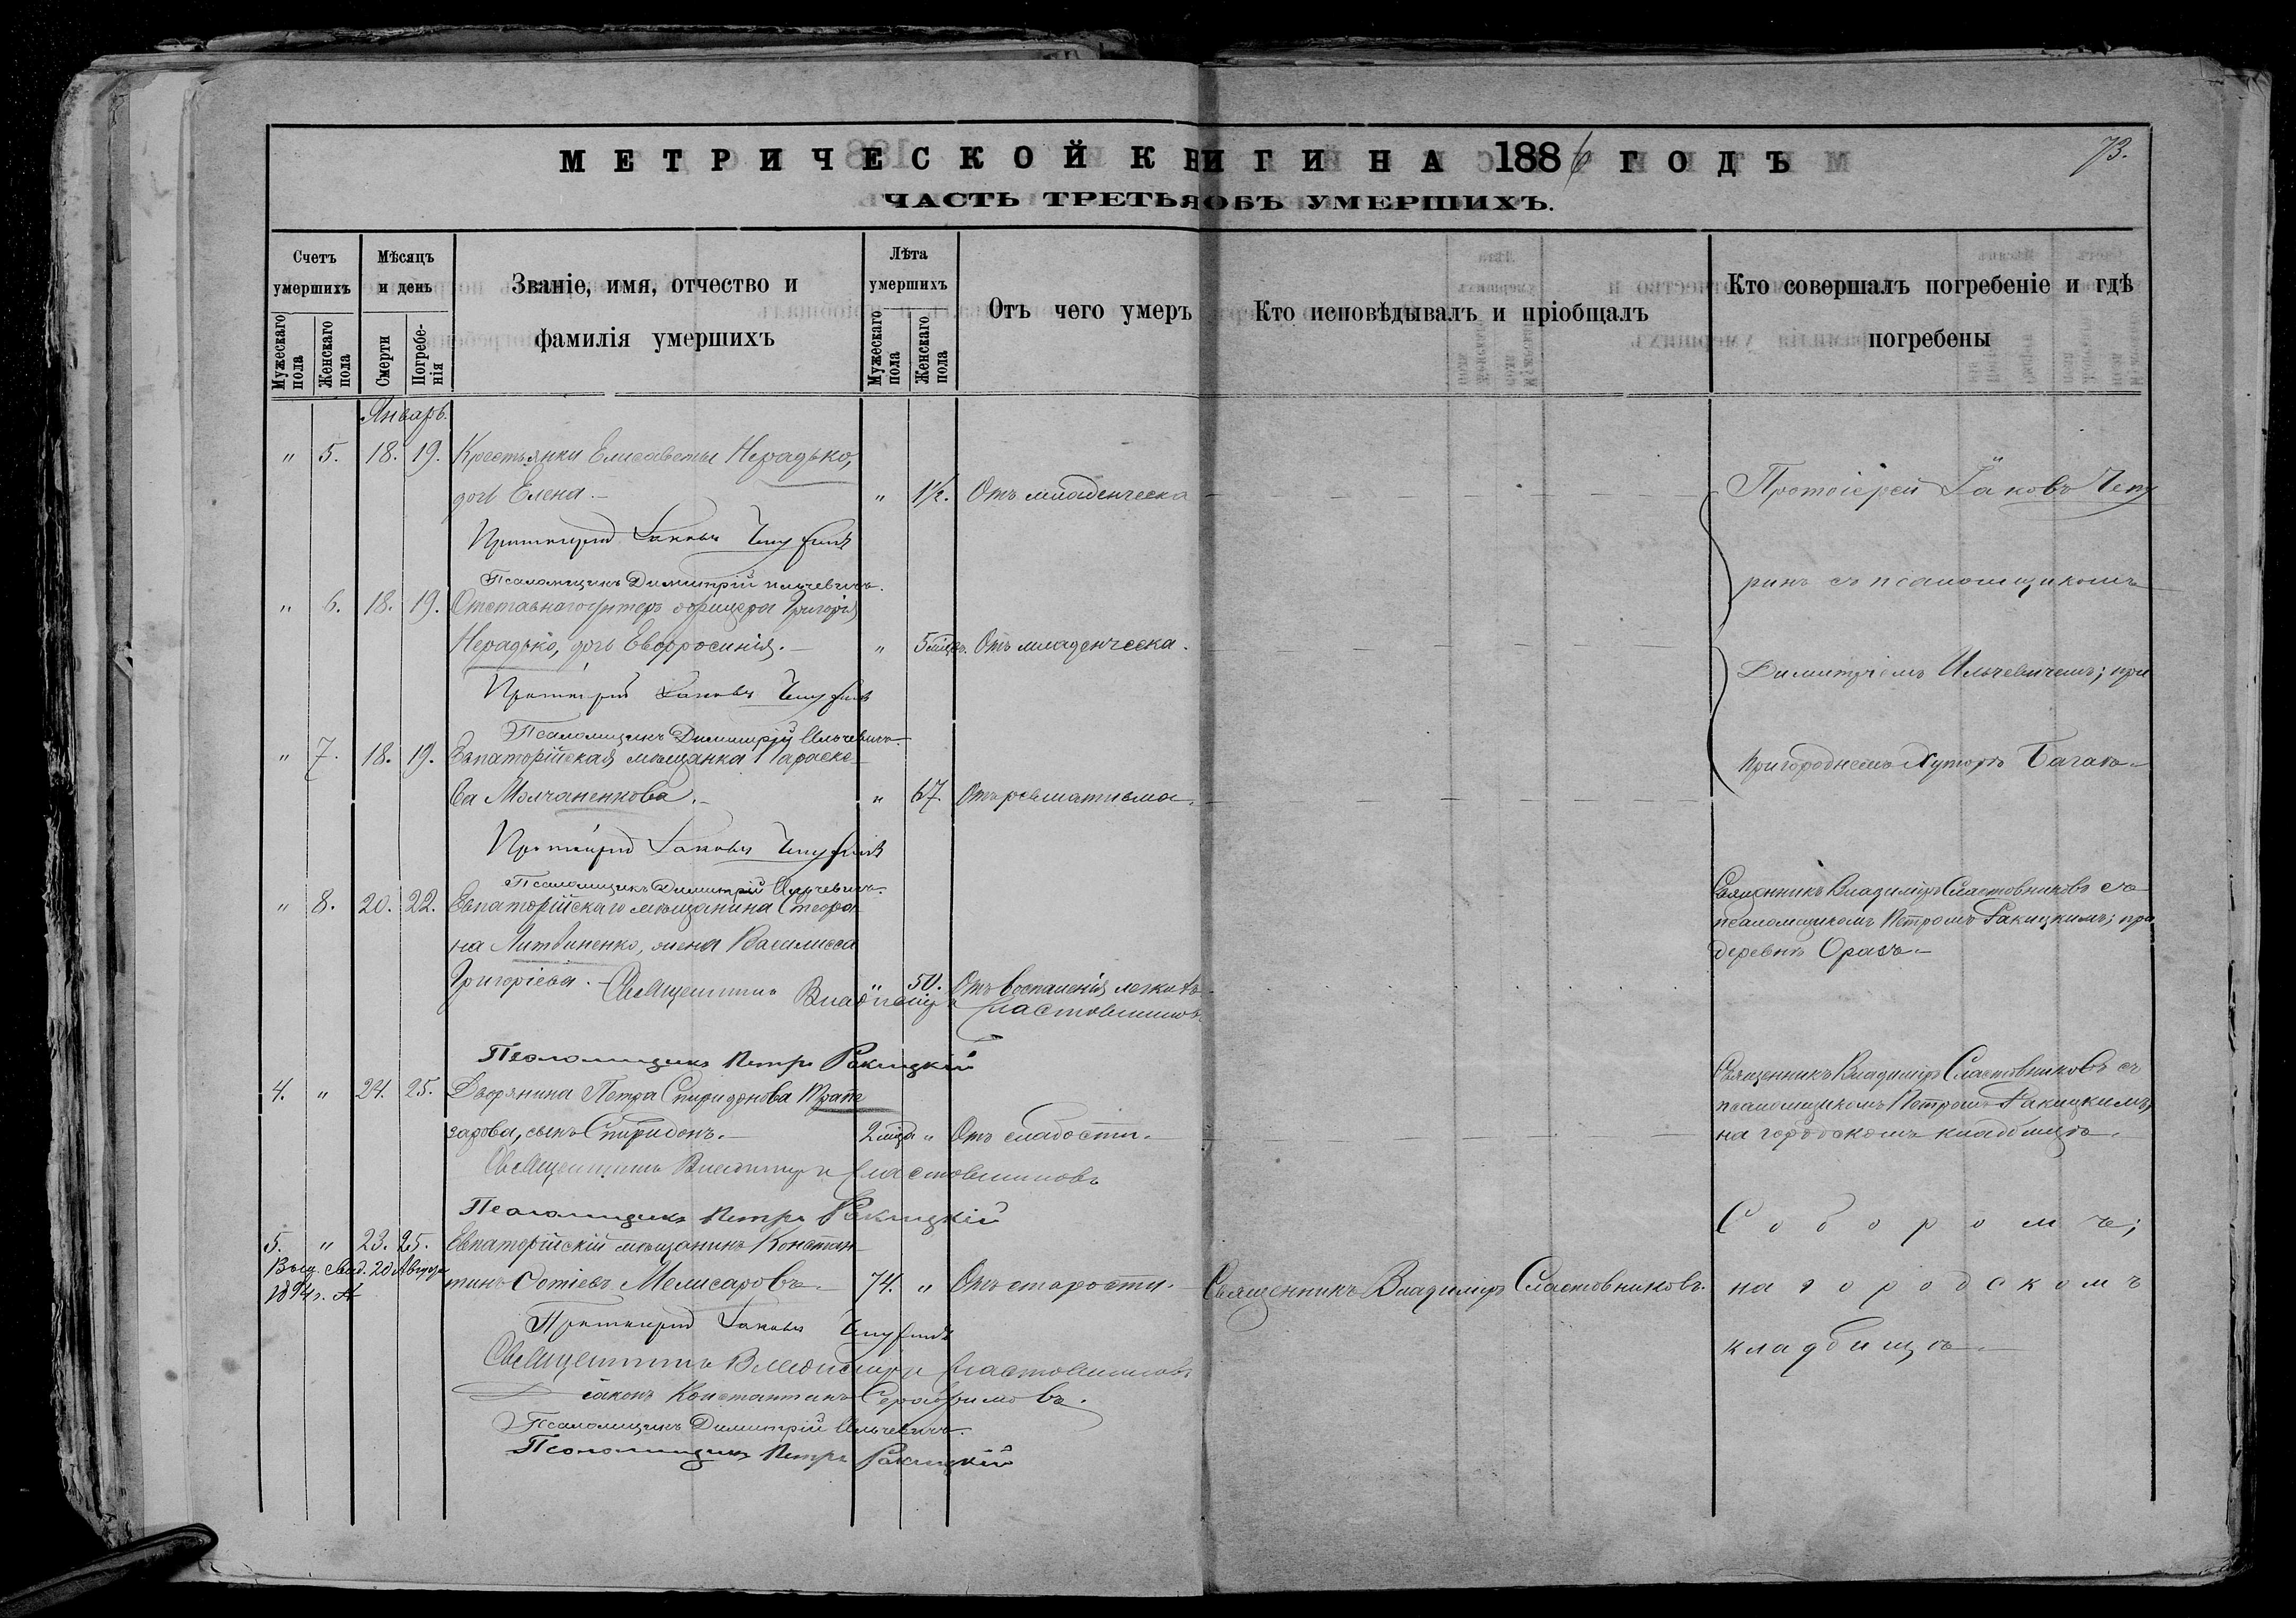 73.
МЕТРИЧЕСКОЙ КНИГИ НА 1886 ГОДЪ
ЧАСТЬ ТРЕТЬЯ ОБЪ УМЕРШИХЪ.
Счетъ умершихъ
Мужескаго пола
Женскаго пола
Мѣсяцъ и день
Смерти
Погребе-нія
Званіе, имя, отчество и
фамилія умершихъ
Лѣта умершихъ
Мужескаго пола
Женскаго пола
Отъ чего умеръ
Кто исповѣдывалъ и пріобщалъ
Кто совершалъ погребеніе и гдѣ
погребены
Январь.
" 5. 18. 19. Крестьянки Елисаветы Нерадько,
дочь Елена. " 1½. Отъ младенческа
Протоіерей Іаковъ Чепу
Протоіерей Іаковъ Чепуринъ
Псаломщикъ Димитрій Ильчевичъ.
ринъ съ псаломщикомъ
" 6. 18. 19. Отставнаго унтеръ офицера Григорія
Нерадько, дочь Евфросинія. " 5 мѣц. Отъ младенческа.
Димитріемъ Ильчевичемъ; при
Протоіерей Іаковъ Чепуринъ
Псаломщикъ Димитрій Ильчевичъ.
" 7. 18. 19. Евпаторійская мѣщанка Параске-
пригороднемъ хуторѣ Багай.
ва Молчаненкова. " 67. Отъ ревматизма.
Протоіерей Іаковъ Чепуринъ
Псаломщикъ Димитрій Ильчевичъ.
" 8. 20. 22. Евпаторійскаго мѣщанина Стефа-
на Литвиненко, жена Василисса
Григоріева. " 50. Отъ воспаленія легкихъ
Священникъ Владиміръ Сластовниковъ съ
псаломщикомъ Петромъ Ракицкимъ; при
деревнѣ Оразъ.
Священникъ Владиміръ Сластовниковъ
Псаломщикъ Петръ Ракицкій
4. " 24. 25. Дворянина Петра Спиридонова
зарова, сынъ Спиридонъ. 2 мѣца " Отъ слабости.
Священникъ Владиміръ Сластовниковъ съ
псаломщикомъ Петромъ Ракицкимъ,
на городскомъ кладбищѣ.
Священникъ Владиміръ Сластовниковъ
Псаломщикъ Петръ Ракицкій
5. " 23. 25. Евпаторійскій мѣщанинъ Констан-
тинъ Фотіевъ Мелисаровъ. 74. " Отъ старости. Священникъ Владиміръ Сластовниковъ.
Соборомъ;
на городскомъ
кладбищѣ.
Выд. свид. 20 Августа
1894 г.
Протоіерей Іаковъ Чепуринъ
Священникъ Владиміръ Сластовниковъ
Діаконъ Константинъ Серафимовъ.
Псаломщикъ Димитрій Ильчевичъ.
Псаломщикъ Петръ Ракицкій